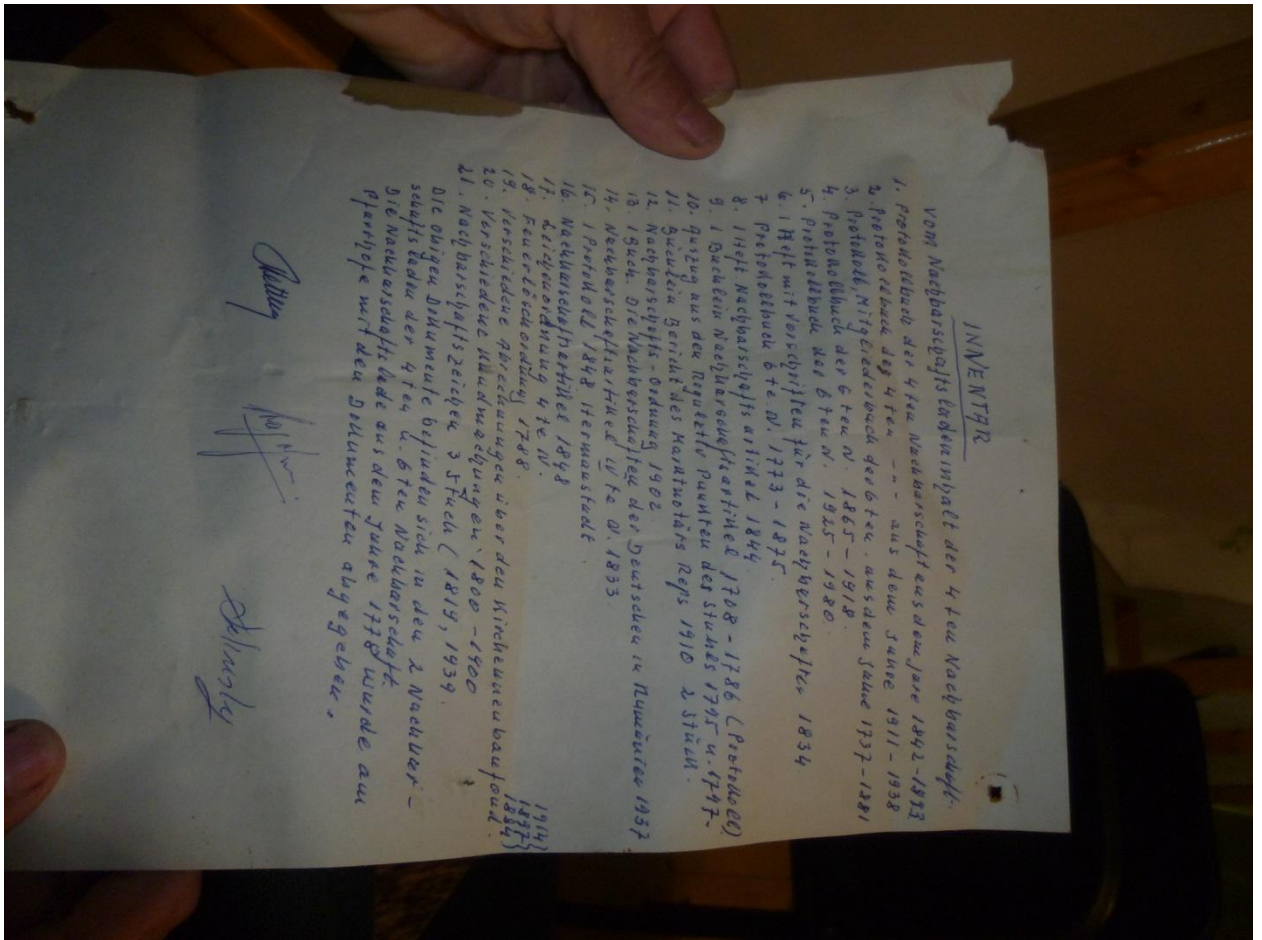 INNENTAR
Vom Nachbarschaftsladeninhalt der 4ten Nachbarschaft.
1. Protokollbuch der 4ten Nachbarschaft aus dem Jare 1842-1893
2. Protokollbuch der 4ten -"- aus dem Jahre 1911-1938
3. Protokoll, Mitgliederbuch der 6ten. aus dem Jahre 1737-1881
4. Protokollbuch der 6ten N. 1865-1918.
5. Protokollbuch der 6ten N. 1925-1980.
6. 1 Heft mit Vorschriften für die Nachbarschaften 1834
7 Protokollbuch 6te N. 1773-1875.
8. 1 Heft. Nachbarschaftsartikel 1844.
9. 1 Büchlein Nachbarschaftsartikel 1708-1786 (Protokoll)
10. Auszug aus den Punkten des Stuhls 1795 u. 1797-
11. Büchlein Bericht des Reps 1910 2 Stück.
12 Nachbarschafts-Odnung 1902
13. 1 Buch. Die Nachbarschaften der Deutschen in Rumänien 1937
14. Nachbarschaftsartikel IV te N. 1833.
15. 1 Protokoll 1848 Hermanstadt
16. Nachbarschaftsartikel 1848
17. Leichenordnung 4te N. 1914}
18. Feuerlöschordnung 1788. 1897}
19. Verschiedene Abrechnungen über den Kirchenneubaufond. 1884}
20. Verschiedene Kundmachungen 1800-1900
21. Nachbaschaftszeichen 3 Stück (1819, 1939
Die obigen Dokumente befinden sich in den 2 Nachbar-
schaftsladen der 4ten u. 6ten Nachbarschaft.
Die Nachbarschaftslade aus dem Jahre 1778 wurde am
Pfarrhofe mit den Dokumenten abgegeben.